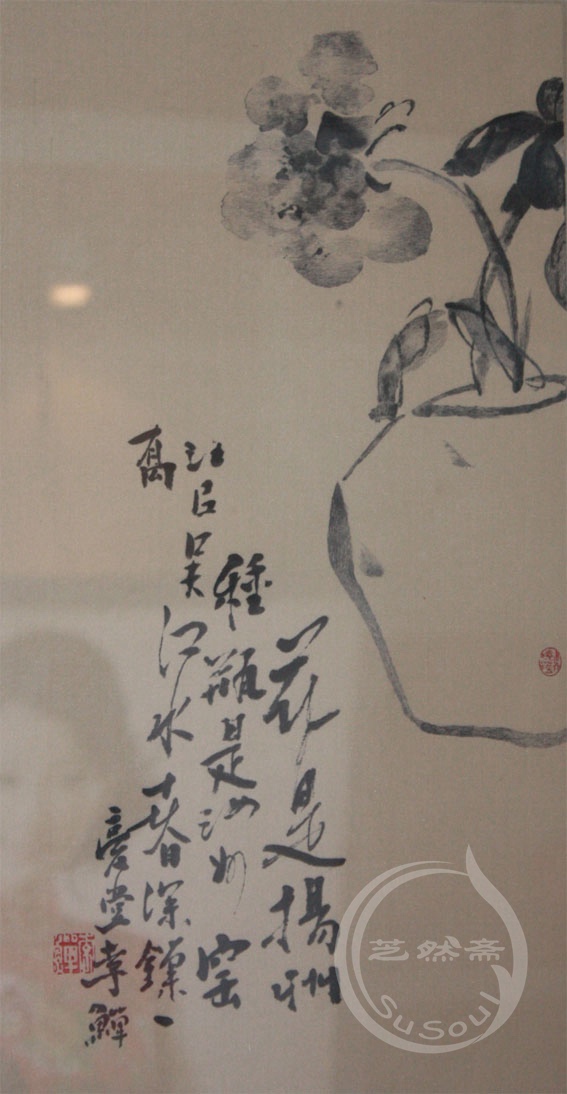 花是揚州
種瓶是汝州窑
注㠯吳江水春深鎖二
喬
復堂李鱓
芝然斋
SuSoul